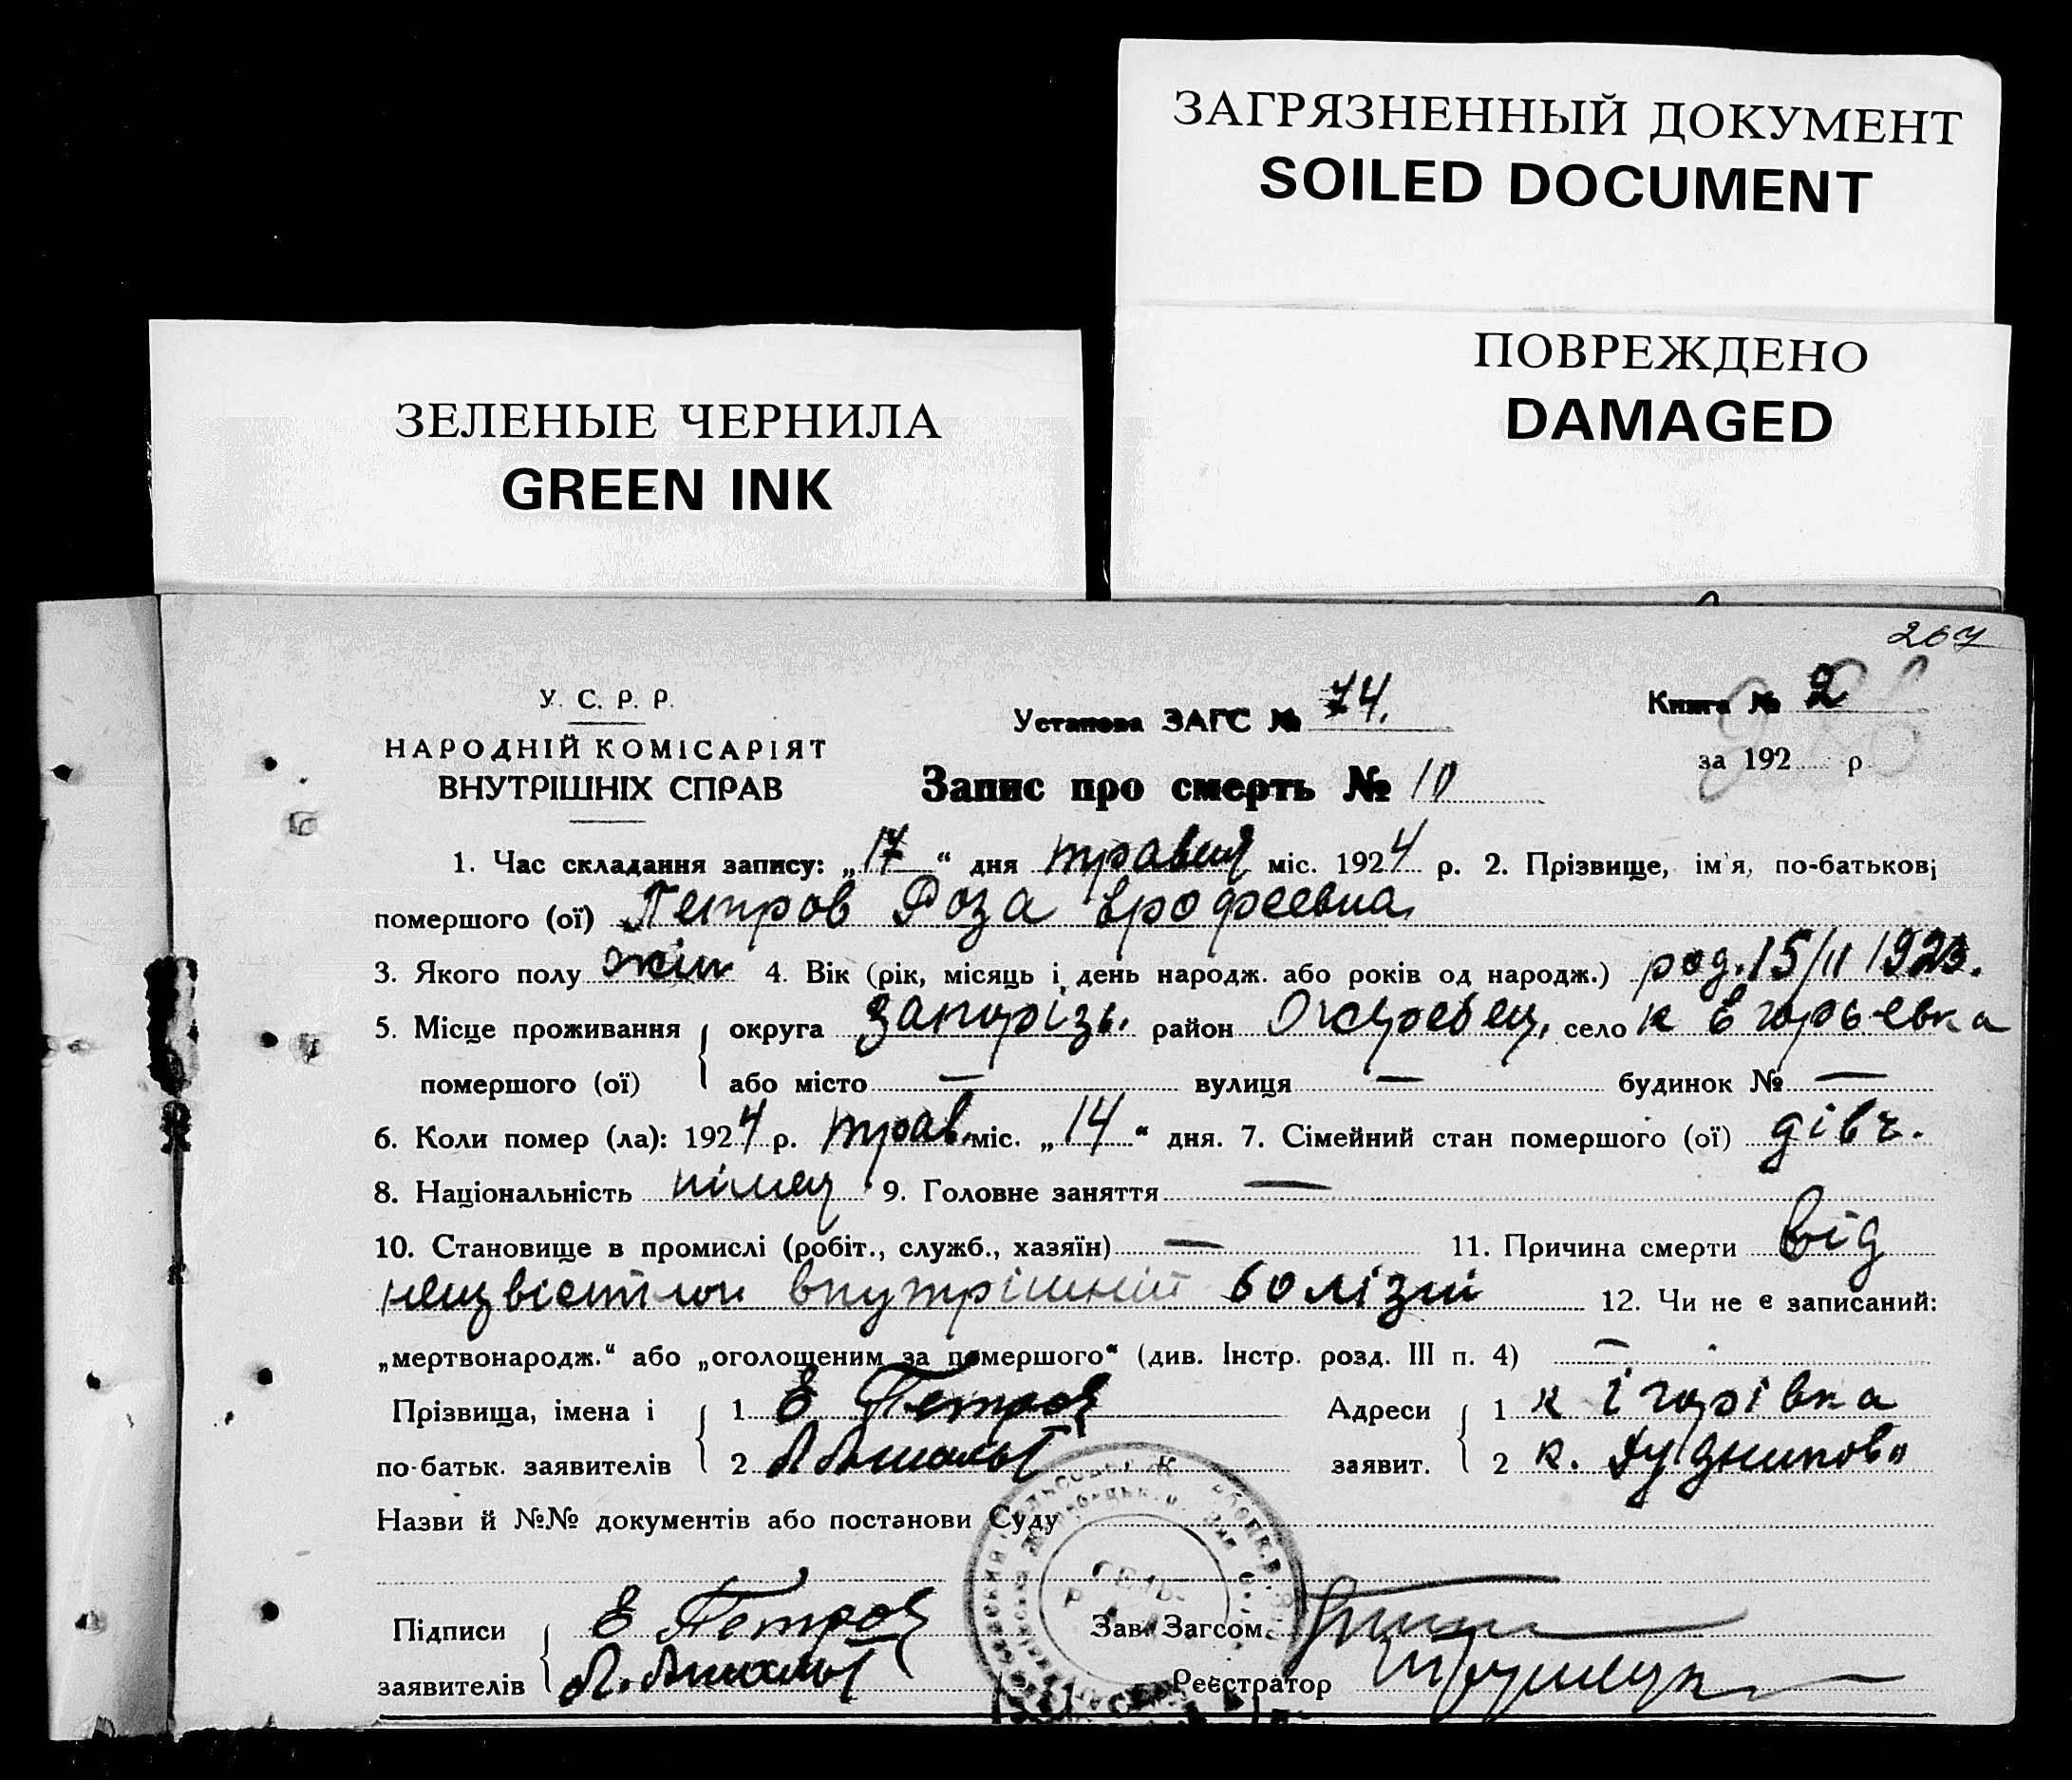 ЗАГРЯЗНЕННЫЙ ДОКУМЕНТ
SOILED DOCUMENT
ПОВРЕЖДЕНО
DAMAGED
ЗЕЛЕНЫЕ ЧЕРНИЛА
GREEN INK
267
У. С. Р. Р.
НАРОДНІЙ КОМІСАРІЯТ
ВНУТРІШНІХ СПРАВ
Установа ЗАГС № 74.
Книга № 2
за 192 р
Запис про смерть № 10
1. Час складання запису: „17“ дня травня міс. 1924 р. 2. Прізвище, ім'я, по-батькові
помершого (ої) Петров Роза Ерофеевна
3. Якого полу жін 4. Вік (рік, місяць і день народж. або років од народж.) род. 15/II 1923.
5. Місце проживання округа Запоріз. район село к Егорьевка
помершого (ої) або місто — вулиця — будинок № —
6. Коли помер (ла): 1924 р. трав. міс. „14“ дня. 7. Сімейний стан помершого (ої) дівч.
8. Національність німец 9. Головне заняття —
10. Становище в промислі (робіт., служб., хазяїн) — 11. Причина смерти від
внутрішній болізни 12. Чи не є записаний:
„мертвонародж.“ або „оголошеним за помершого“ (див. Інстр. розд. III п. 4) —
Прізвища, імена і 1 Е Петров Адреси 1 к Ігорівка
по-батьк. заявителів 2 заявит. 2 к.
Назви й №№ документів або постанови Суду
Підписи Е Петров Зав. Загсом
заявителів Реєстратор